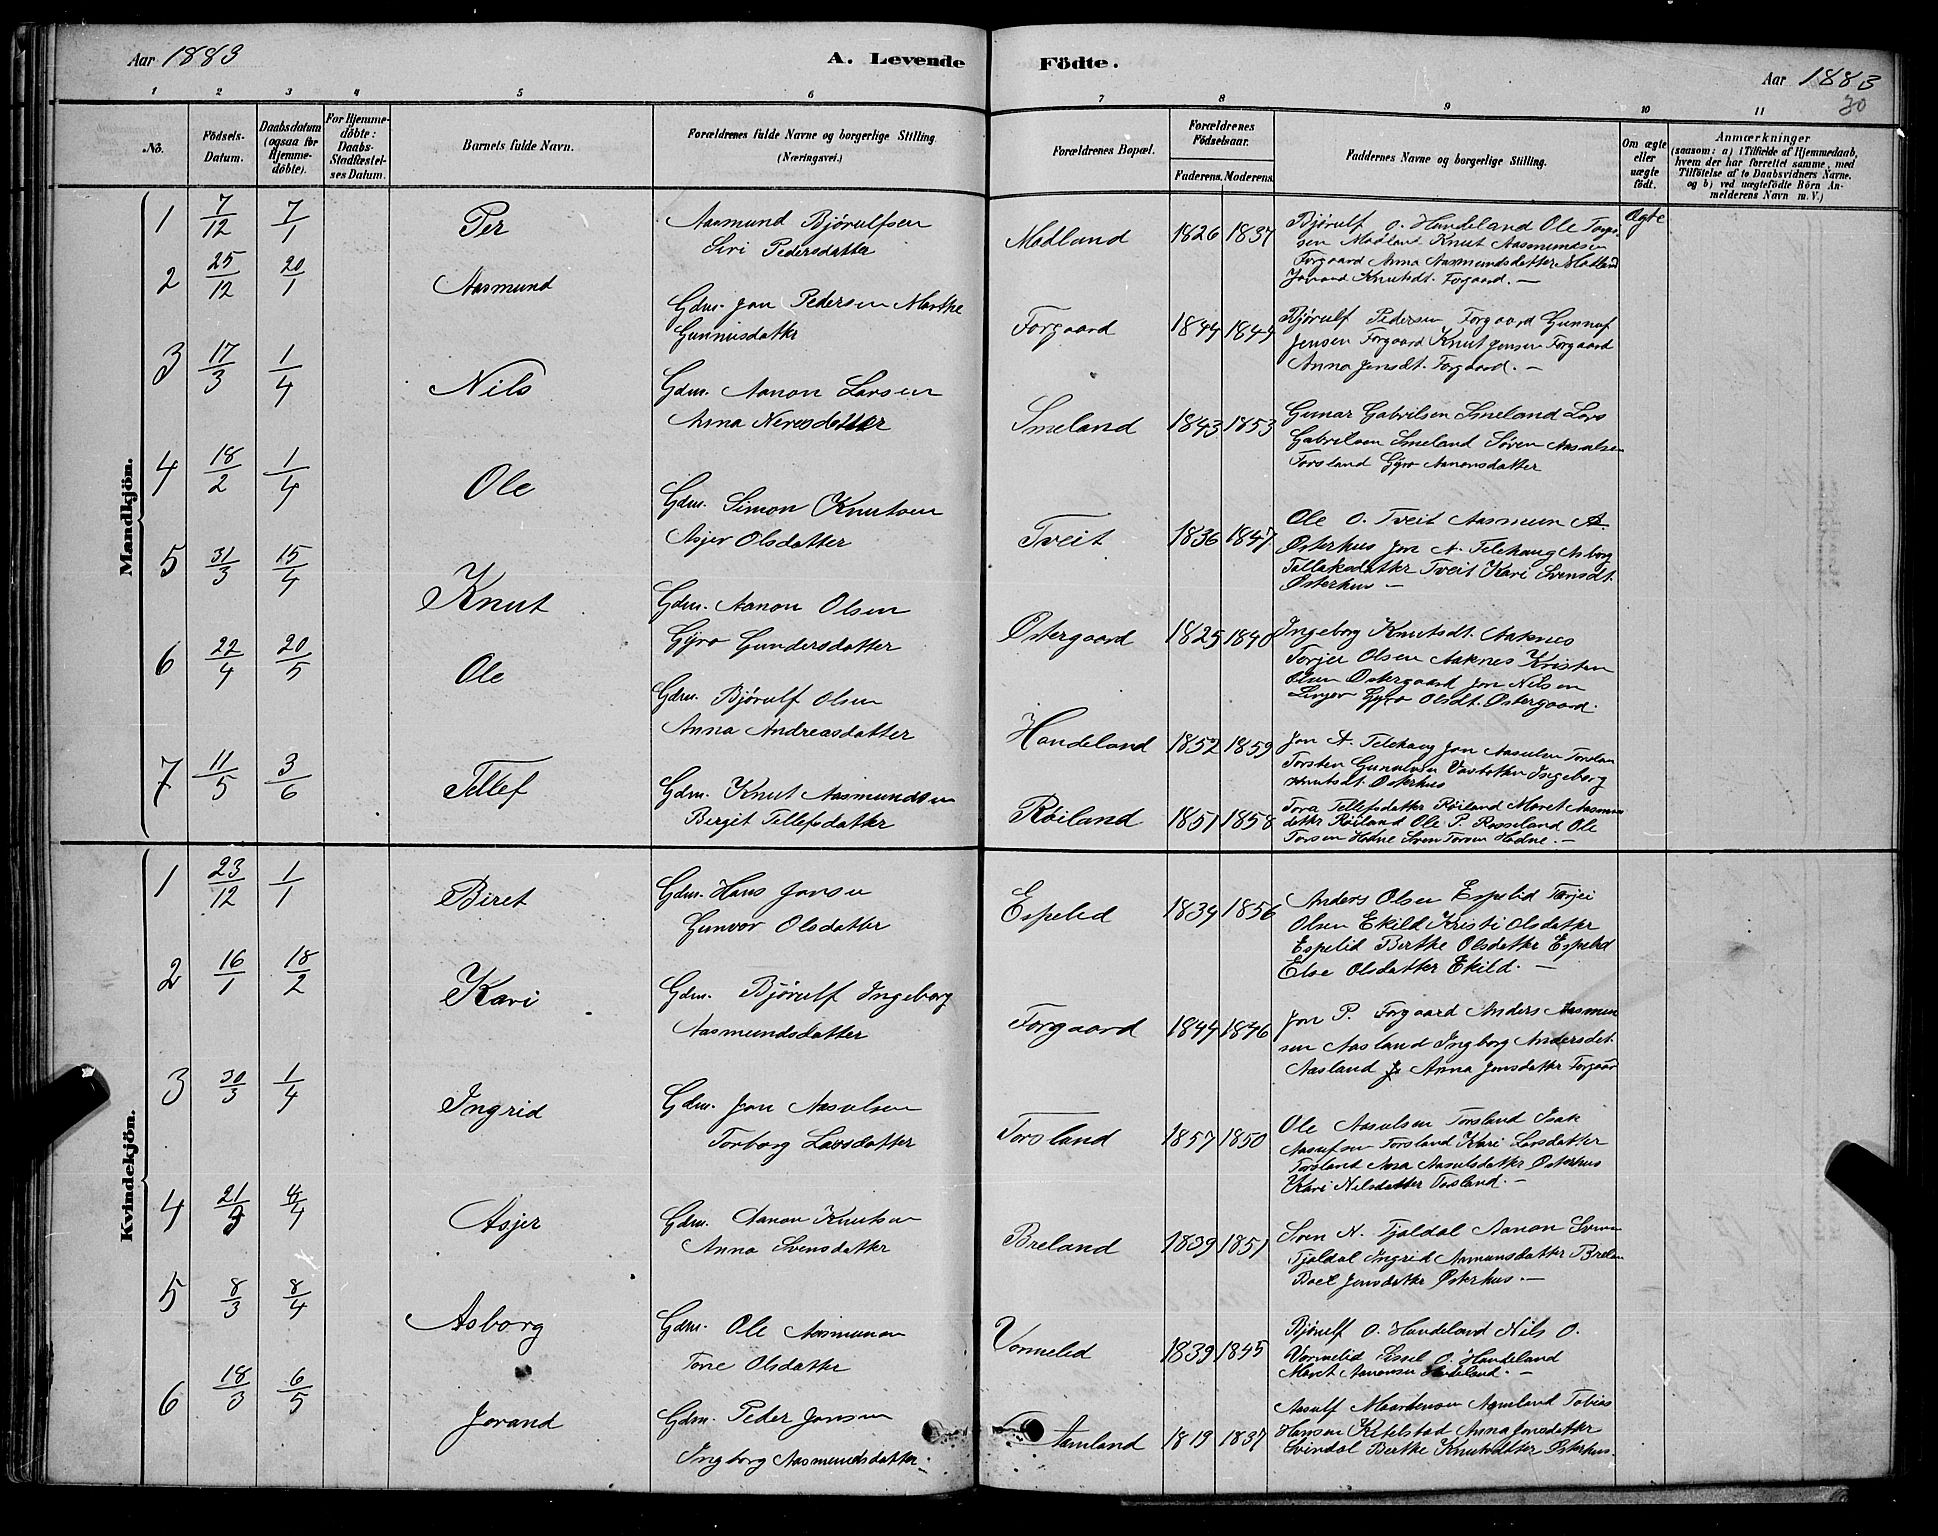 Aar 1883
A. Levende
Födte.
Aar 1883
30
1 2 3 4 5 6 7 8 9 10 11
No.
Födsels-
Datum.
Daabsdatum
(ogsaa for
Hjemme-
döbte).
For Hjemme-
döbte:
Daabs-
Stadfæstel-
ses Datum.
Barnets fulde Navn.
Forældrenes fulde Navne og borgerlige Stilling.
(Næringsvei.)
Forældrenes Bopæl.
Forældrenes
Födselsaar.
Faderens. Moderens.
Faddernes Navne og borgerlige Stilling.
Om ægte
eller
uægte
födt.
Anmærkninger
(saasom: a) i Tilfælde af Hjemmedaab,
hvem der har forrettet samme, med
Tilföielse af to Daabsvidners Navne.
og b) ved uægtefödte Börn An-
melderens Navn m. V.)
Mandkjön.
1 7/12 7/1 Per
Aasmund Bjørulfsen
Siri Pedersdatter
Modland 1826 1837
Bjørulf O. Handeland Ole Torjs
sen Modland Knut Aasmundsen
Forgaard Anna Aasmundsdatter Modland
Jorand Knutsdt. Forgaard. —
Ægte
2 25/12 20/1 Aasmund
Gdm. Jon Pedersen Marthe
Gunnusdatter
Forgaard 1844 1849
Bjørulf Pedersen Forgaard Gunnuf
Jensen Forgaard Knut Jensen Forgaard
Anna Jensdt. Forgaard. —
3 17/3 1/4 Nils
Gdm. Aanon Larsen
Anna Neresdatter
Smeland 1843 1853
Gunar Gabrilsen Smeland Lars
Gabrilsen Smeland Søren Aasulsen
Torsland Gyro Aanonsdatter
4 18/2 1/4 Ole
Gdm. Simon Knutsen
Asjer Olsdatter
Tveit 1836 1847
Ole O. Tveit Aasmun A
Østerhus Jon A. Telehaug Asborg
Tellaksdatter Tveit Kari Svensdt.
Østerhus —
5 31/3 15/4 Knut
Gdm. Aanon Olsen
Gyro Gundersdatter
Østergaard 1825 1840
Ingeborg Knutsdt. Aaknes
Torjer Olsen Aaknes Kristen
Olsen Østergaard Jon Nilsen
Gyro Olsdt. Østergaard.
6 22/4 20/5 Ole
Gdm. Bjørulf Olsen
Anna Andreasdatter
Handeland 1852 1859
Jon A. Telehaug Jon Aasulsen Torslan
Torsten Ingeborg
Knutsdt. Østerhus
7 11/5 3/6 Tellef
Gdm. Knut Aasmundsen
Berget Tellefsdatter
Røiland 1851 1858
Tora Tellefsdatter Røiland Maret Aasmun
datter Røiland Ole P. Rosseland Ole
Torsen Hodne Sven Torsen Hodne. —
Kvindekjön.
1 23/12 1/1 Biret
Gdm. Hans Jonsen
Gunvor Olsdatter
Espelid 1834 1856
Anders Olsen Espelid Terjei
Olsen Ekild Kristi Olsdatter
Espelid Berthe Olsdatter Espelid
Else Olsdatter Ekild. —
2 16/1 18/2 Kari
Gdm. Bjørulf Ingeborg
Aasmundsdatter
Forgaard 1844 1846
Jon P. Forgaard Anders Aasmun
sen Aasland Ingborg Andersdt.
Aasland Anna Jensdatter Forgaar
3 30/3 1/4 Ingrid
Gdm. Jon Aasulsen
Torborg Larsdatter
Torsland 1857 1850
Ole Aasulsen Torsland Isak
Aasulsen Torsland Kari Larsdatter
Torsland Ana Aasulsdatter Østerhus
Kari Nilsdatter Torsland. —
4 21/3 8/4 Asjer
Gdm. Aanon Knutsen
Anna Svensdatter
Breland 1839 1851
Sven N. Fjaldal Aanon Svensen
Fjaldal Ingrid Aamunsdatter Brelan
Boel Jensdatter Østerhus. —
5 8/3 8/4 Asborg
Gdm. Ole Aasmunsen
Tone Olsdatter
Vormelid 1839 1845
Bjørulf O. Handeland Nils O.
Vormelid Sissel O. Handeland
Maret Aanonsen Handeland. —
6 18/3 6/5 Jorand
Gdm. Peder Jonsen
Ingborg Aasmundsdatter.
Aamland 1819 1837
Aasulf Maartensen Aamland Tobias
Hansen Ketelstad Anna Jensdatter
Svindal Berthe Knutsdatter Østerhus.